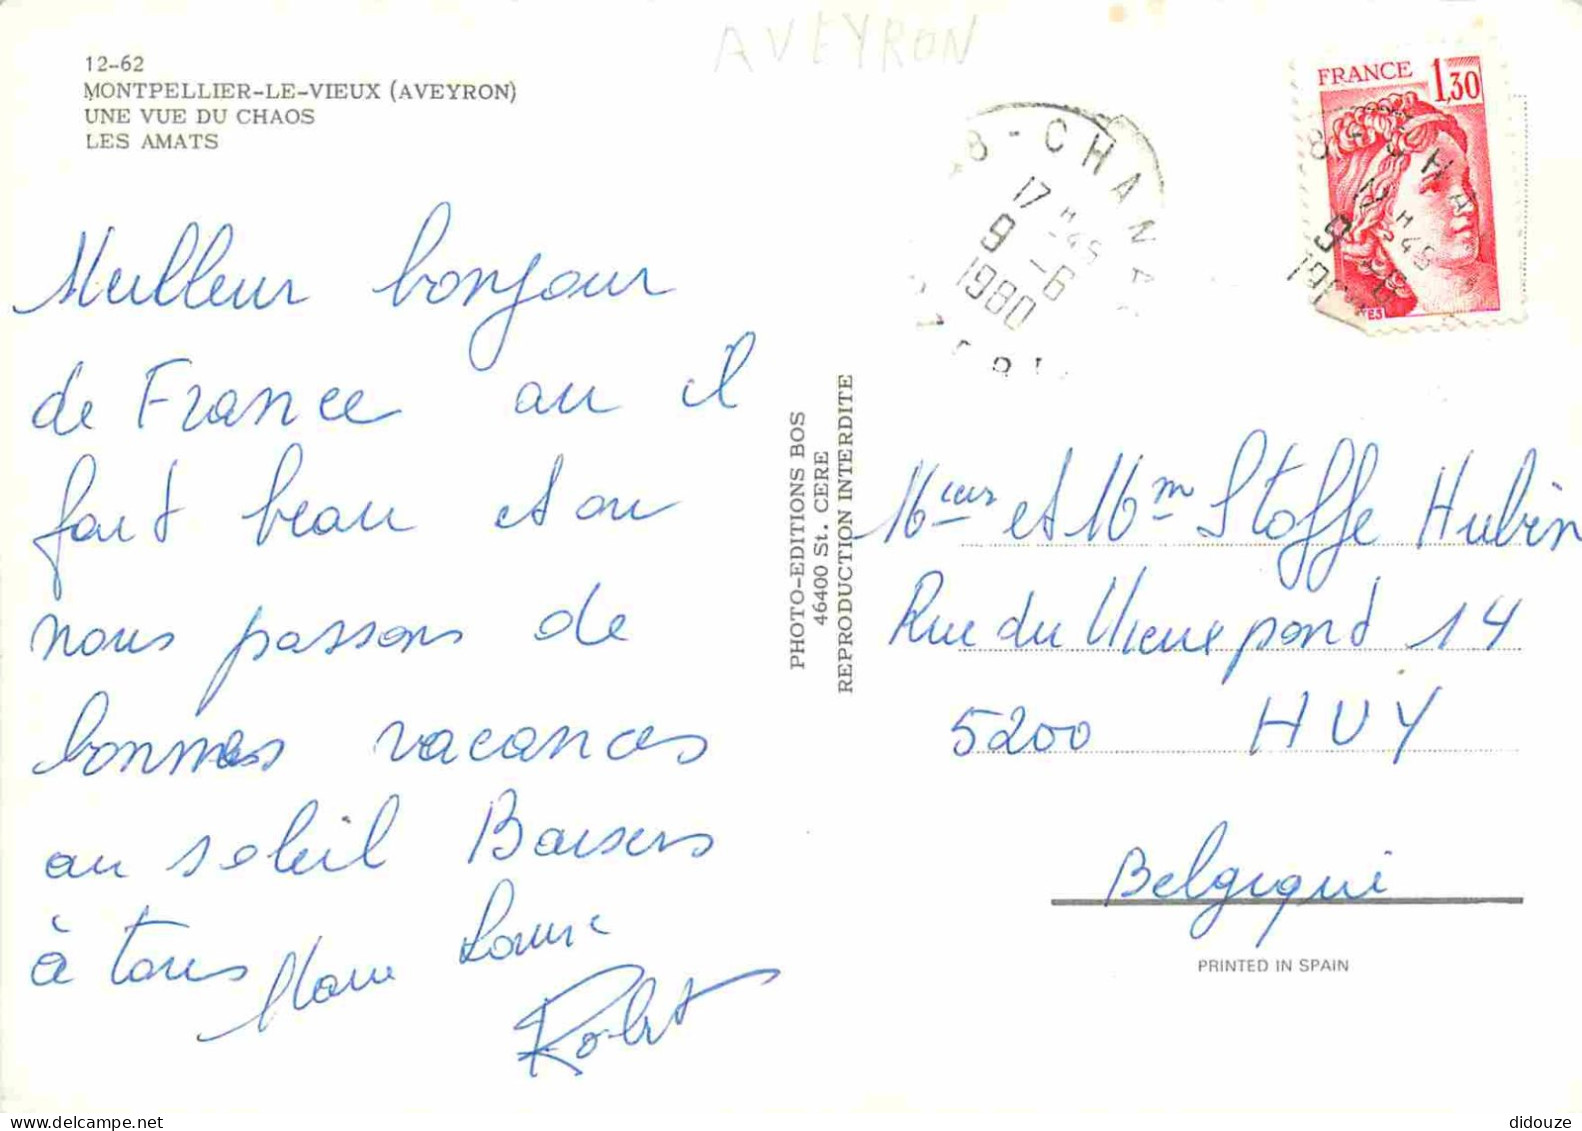 AVEYRON
12-62
MONTPELLIER-LE-VIEUX (AVEYRON)
UNE VUE DU CHAOS
LES AMATS
FRANCE 1,30
8 - CHANA
17 H 45
9 - 6
1980
Meilleur bonjour
de France ou il
fait beau et ou
nous passons de
bonnes vacances
au soleil Baisers
à tous Marie Louise
Robert
PHOTO-EDITIONS BOS
46400 St. CERE
REPRODUCTION INTERDITE
Mieur et Mm Stoffe Hubin
Rue du Vieux pond 14
5200 HUY
Belgique
PRINTED IN SPAIN
didouze